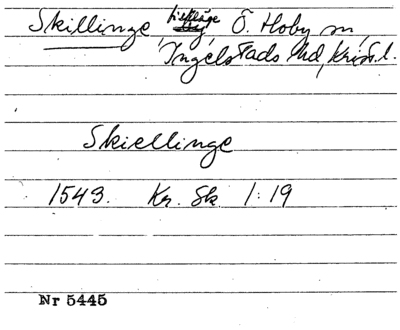 Skillinge, fiskläge, Ö. Hoby sn,
Ingelstads hd, Krist. l.
Skiellinge
1543. Kr. Sk 1:19
Nr 5445